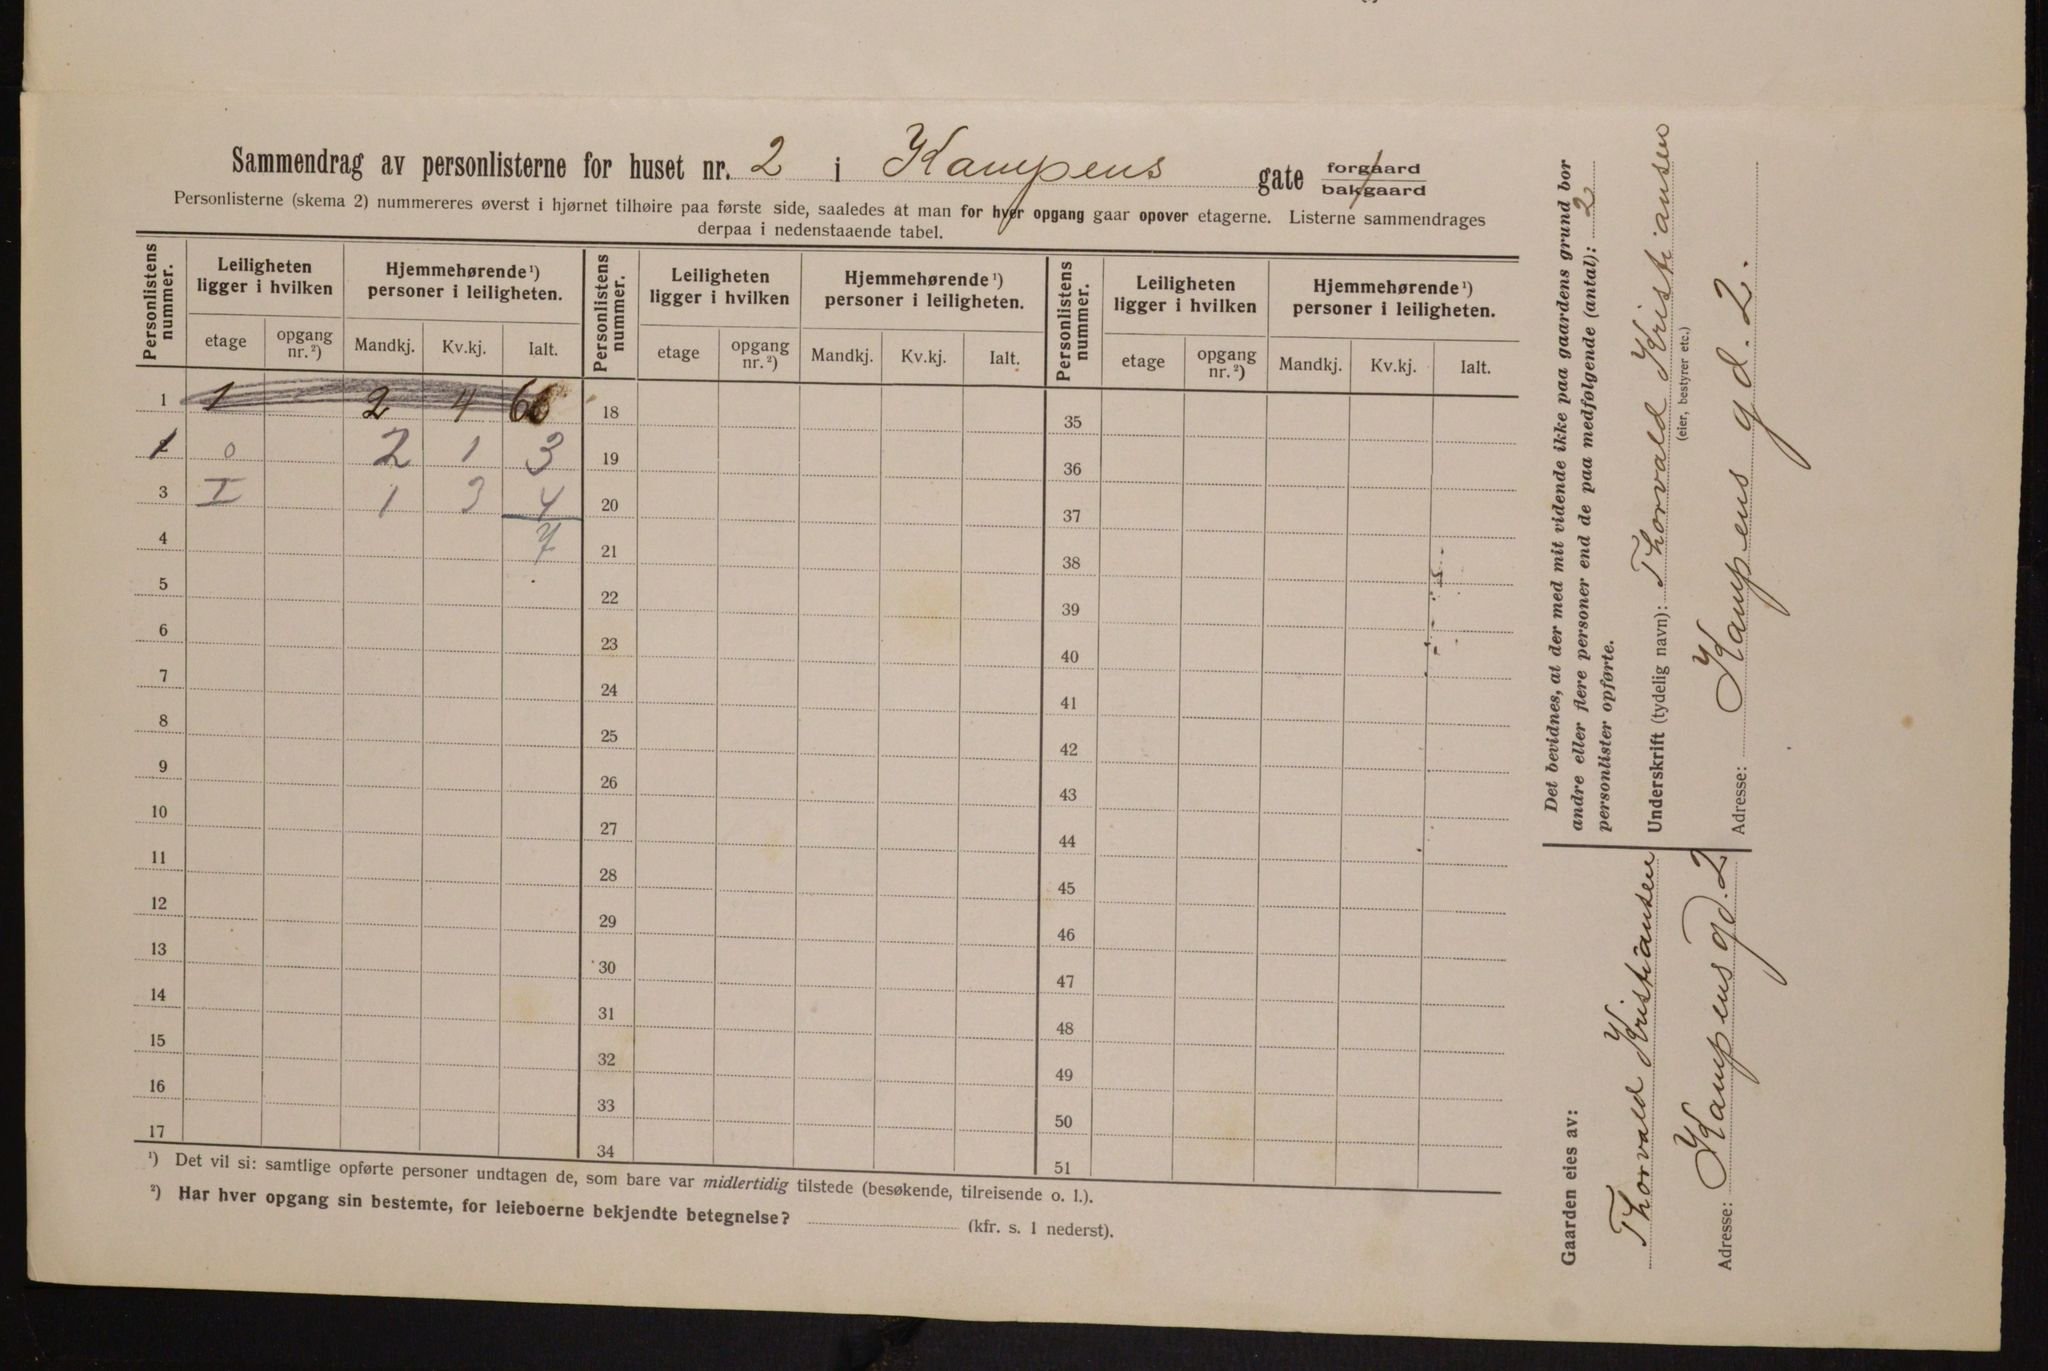 Sammendrag av personlisterne for huset nr. 2 i Kampens gate forgaard
bakgaard
Personlisterne (skema 2) nummereres øverst i hjørnet tilhøire paa første side, saaledes at man for hver opgang gaar opover etagerne. Listerne sammendrages
derpaa i nedenstaaende tabel.
Personlistens nummer. Leiligheten ligger i hvilken Hjemmehørende ¹) personer i leiligheten. Personlistens nummer. Leiligheten ligger i hvilken Hjemmehørende ¹) personer i leiligheten. Personlistens nummer. Leiligheten ligger i hvilken Hjemmehørende ¹) personer i leiligheten.
etage opgang nr. ²) Mandkj. Kv.kj. Ialt. etage opgang nr. ²) Mandkj. Kv.kj. Ialt. etage opgang nr. ²) Mandkj. Kv.kj. Ialt.
1 1 2 4 6 18 35
1 0 2 1 3 19 36
3 I 1 3 4 20 37
4 7 21 38
5 22 39
6 23 40
7 24 41
8 25 42
9 26 43
10 27 44
11 28 45
12 29 46
13 30 47
14 31 48
15 32 49
16 33 50
17 34 51
¹) Det vil si: samtlige opførte personer undtagen de, som bare var midlertidig tilstede (besøkende, tilreisende o. l.).
²) Har hver opgang sin bestemte, for leieboerne bekjendte betegnelse? (kfr. s. 1 nederst).
Det bevidnes, at der med mit vidende ikke paa gaardens grund bor
andre eller flere personer end de paa medfølgende (antal): 2
personlister opførte.
Underskrift (tydelig navn): Thorvald Kristiansen
(eier, bestyrer etc.)
Adresse: Kampens gd. 2.
Gaarden eies av:
Thorvald Kristiansen
Adresse: Kampens gd. 2